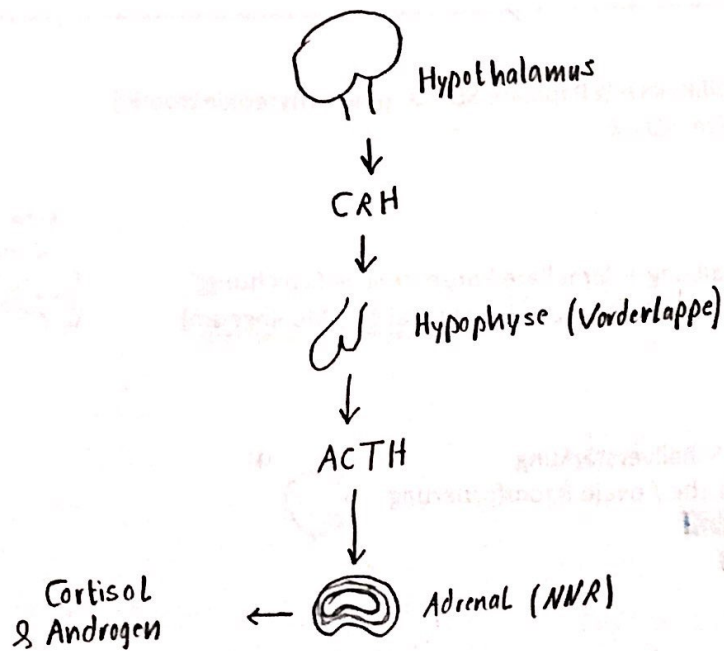 Hypothalamus
CRH
Hypophyse (Vorderlappe)
ACTH
Adrenal (NNR)
Cortisol
& Androgen